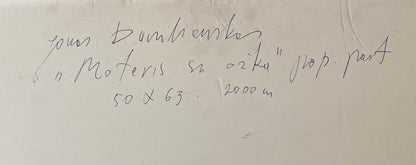 Jonas Daniliauskas
„Moteris su ožka" pop. past
50 X 63. 2000 m